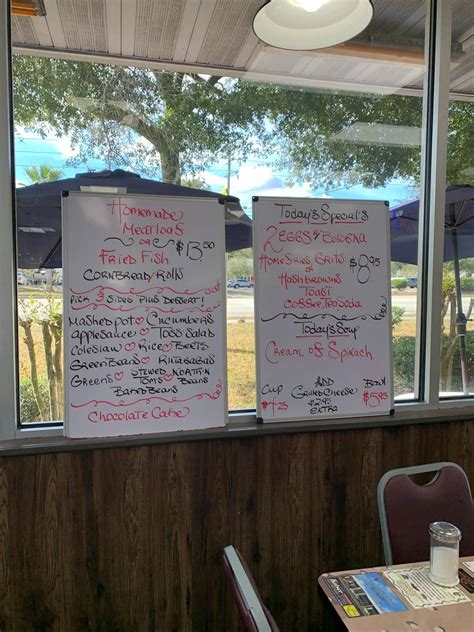 Homemade
Meatloaf
or
Fried Fish
$13.50
Cornbread/Rolls
Pick 3 Sides Plus Dessert!
Mashed pot ♥ Cucumbers
Applesauce ♥ Toss Salad
Coleslaw ♥ Rice ♥ Beets
Green Beans ♥ Rutabagas
Greens ♥ Stewed Toms ♥ Northrn Beans
Baked Beans
Chocolate Cake
Today's Special's
2 Eggs & Bologna
Homefries Grits or
Hashbrowns
$8.95
Toast
Coffee Tea Soda
Today's Soup
Cream of Spinach
Cup
$4.25
Add
Grilled Cheese
$2.95
Extra
Bowl
$5.95